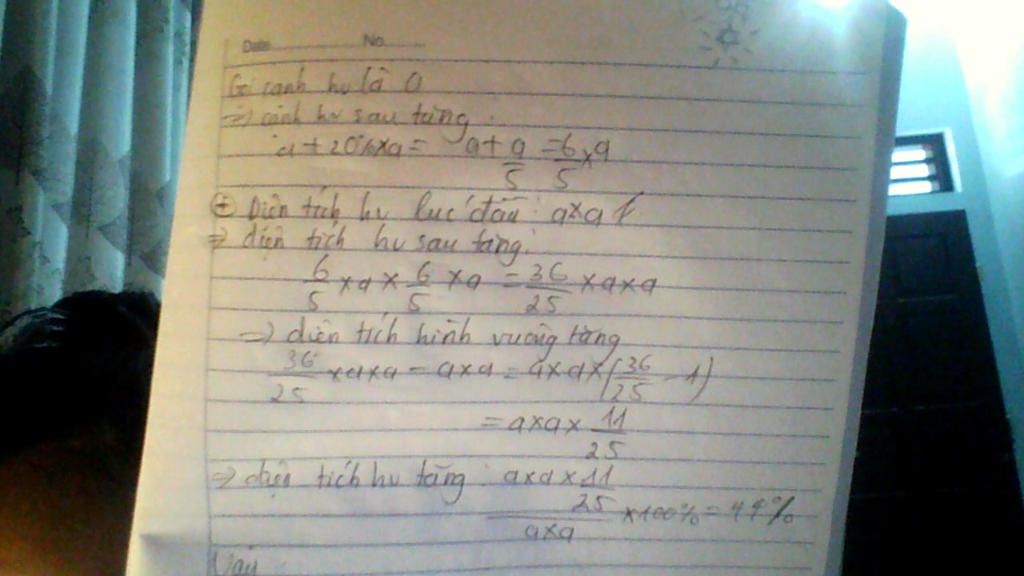 Date No
Gọi cạnh hv là a
=> cạnh hv sau tăng:
a + 20% x a = a + a/5 = 6/5 x a
+ Diện tích hv lúc đầu: a x a
=> diện tích hv sau tăng:
6/5 x a x 6/5 x a = 36/25 x a x a
=> diện tích hình vuông tăng
36/25 x a x a - a x a = a x a x (36/25 - 1)
= a x a x 11/25
=> diện tích hv tăng: a x a x 11/25
a x a x 100% = 44%
Vậy